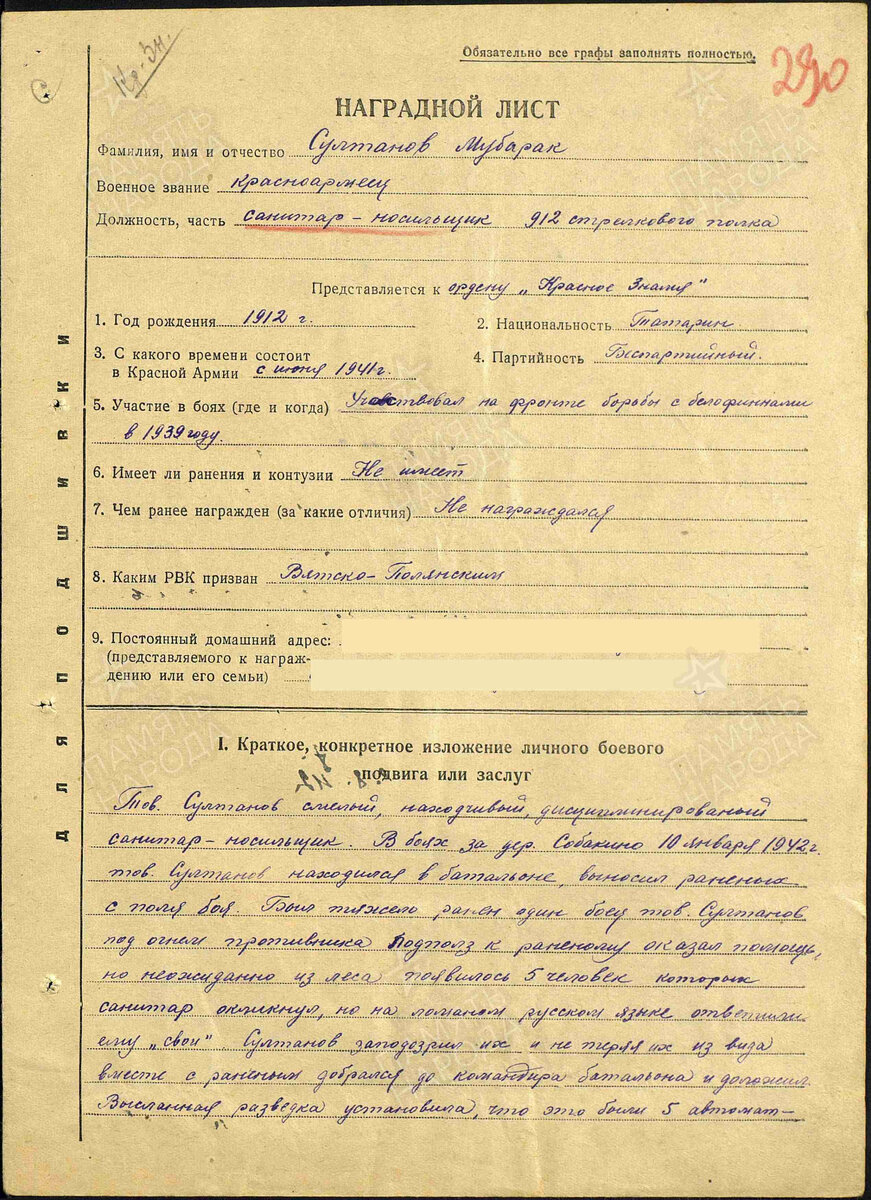 Обязательно все графы заполнять полностью.
290
НАГРАДНОЙ ЛИСТ
Фамилия, имя и отчество Султанов Мубарак
Военное звание красноармеец
Должность, часть санитар-носильщик 912 стрелкового полка
Представляется к ордену „Красное Знамя"
1. Год рождения 1912 г. 2. Национальность Татарин
3. С какого времени состоит
в Красной Армии с июня 1941г. 4. Партийность Беспартийный.
5. Участие в боях (где и когда) Участвовал на фронте борьбы с белофиннами
в 1939 году.
6. Имеет ли ранения и контузии Не имеет
7. Чем ранее награжден (за какие отличия) Не награждался
8. Каким РВК призван Вятско-Полянским
9. Постоянный домашний адрес:
(представляемого к награж-
дению или его семьи)
ДЛЯ ПОДШИВКИ
I. Краткое, конкретное изложение личного боевого
подвига или заслуг
Тов. Султанов смелый, находчивый, дисциплинированый
санитар-носильщик. В боях за дер. Собакино 10 января 1942г.
тов. Султанов находился в батальоне, выносил раненых
с поля боя. Был тяжело ранен один боец тов. Султанов
под огнем противника подполз к раненому оказал помощь,
но неожиданно из леса появилось 5 человек которых
санитар окликнул, но на ломаном русском языке ответили
ему „свои" Султанов заподозрил их и не теряя их из вида
вместе с раненым добрался до командира батальона и доложил
Высланная разведка установила, что это были 5 автомат-
ПАМЯТЬ НАРОДА